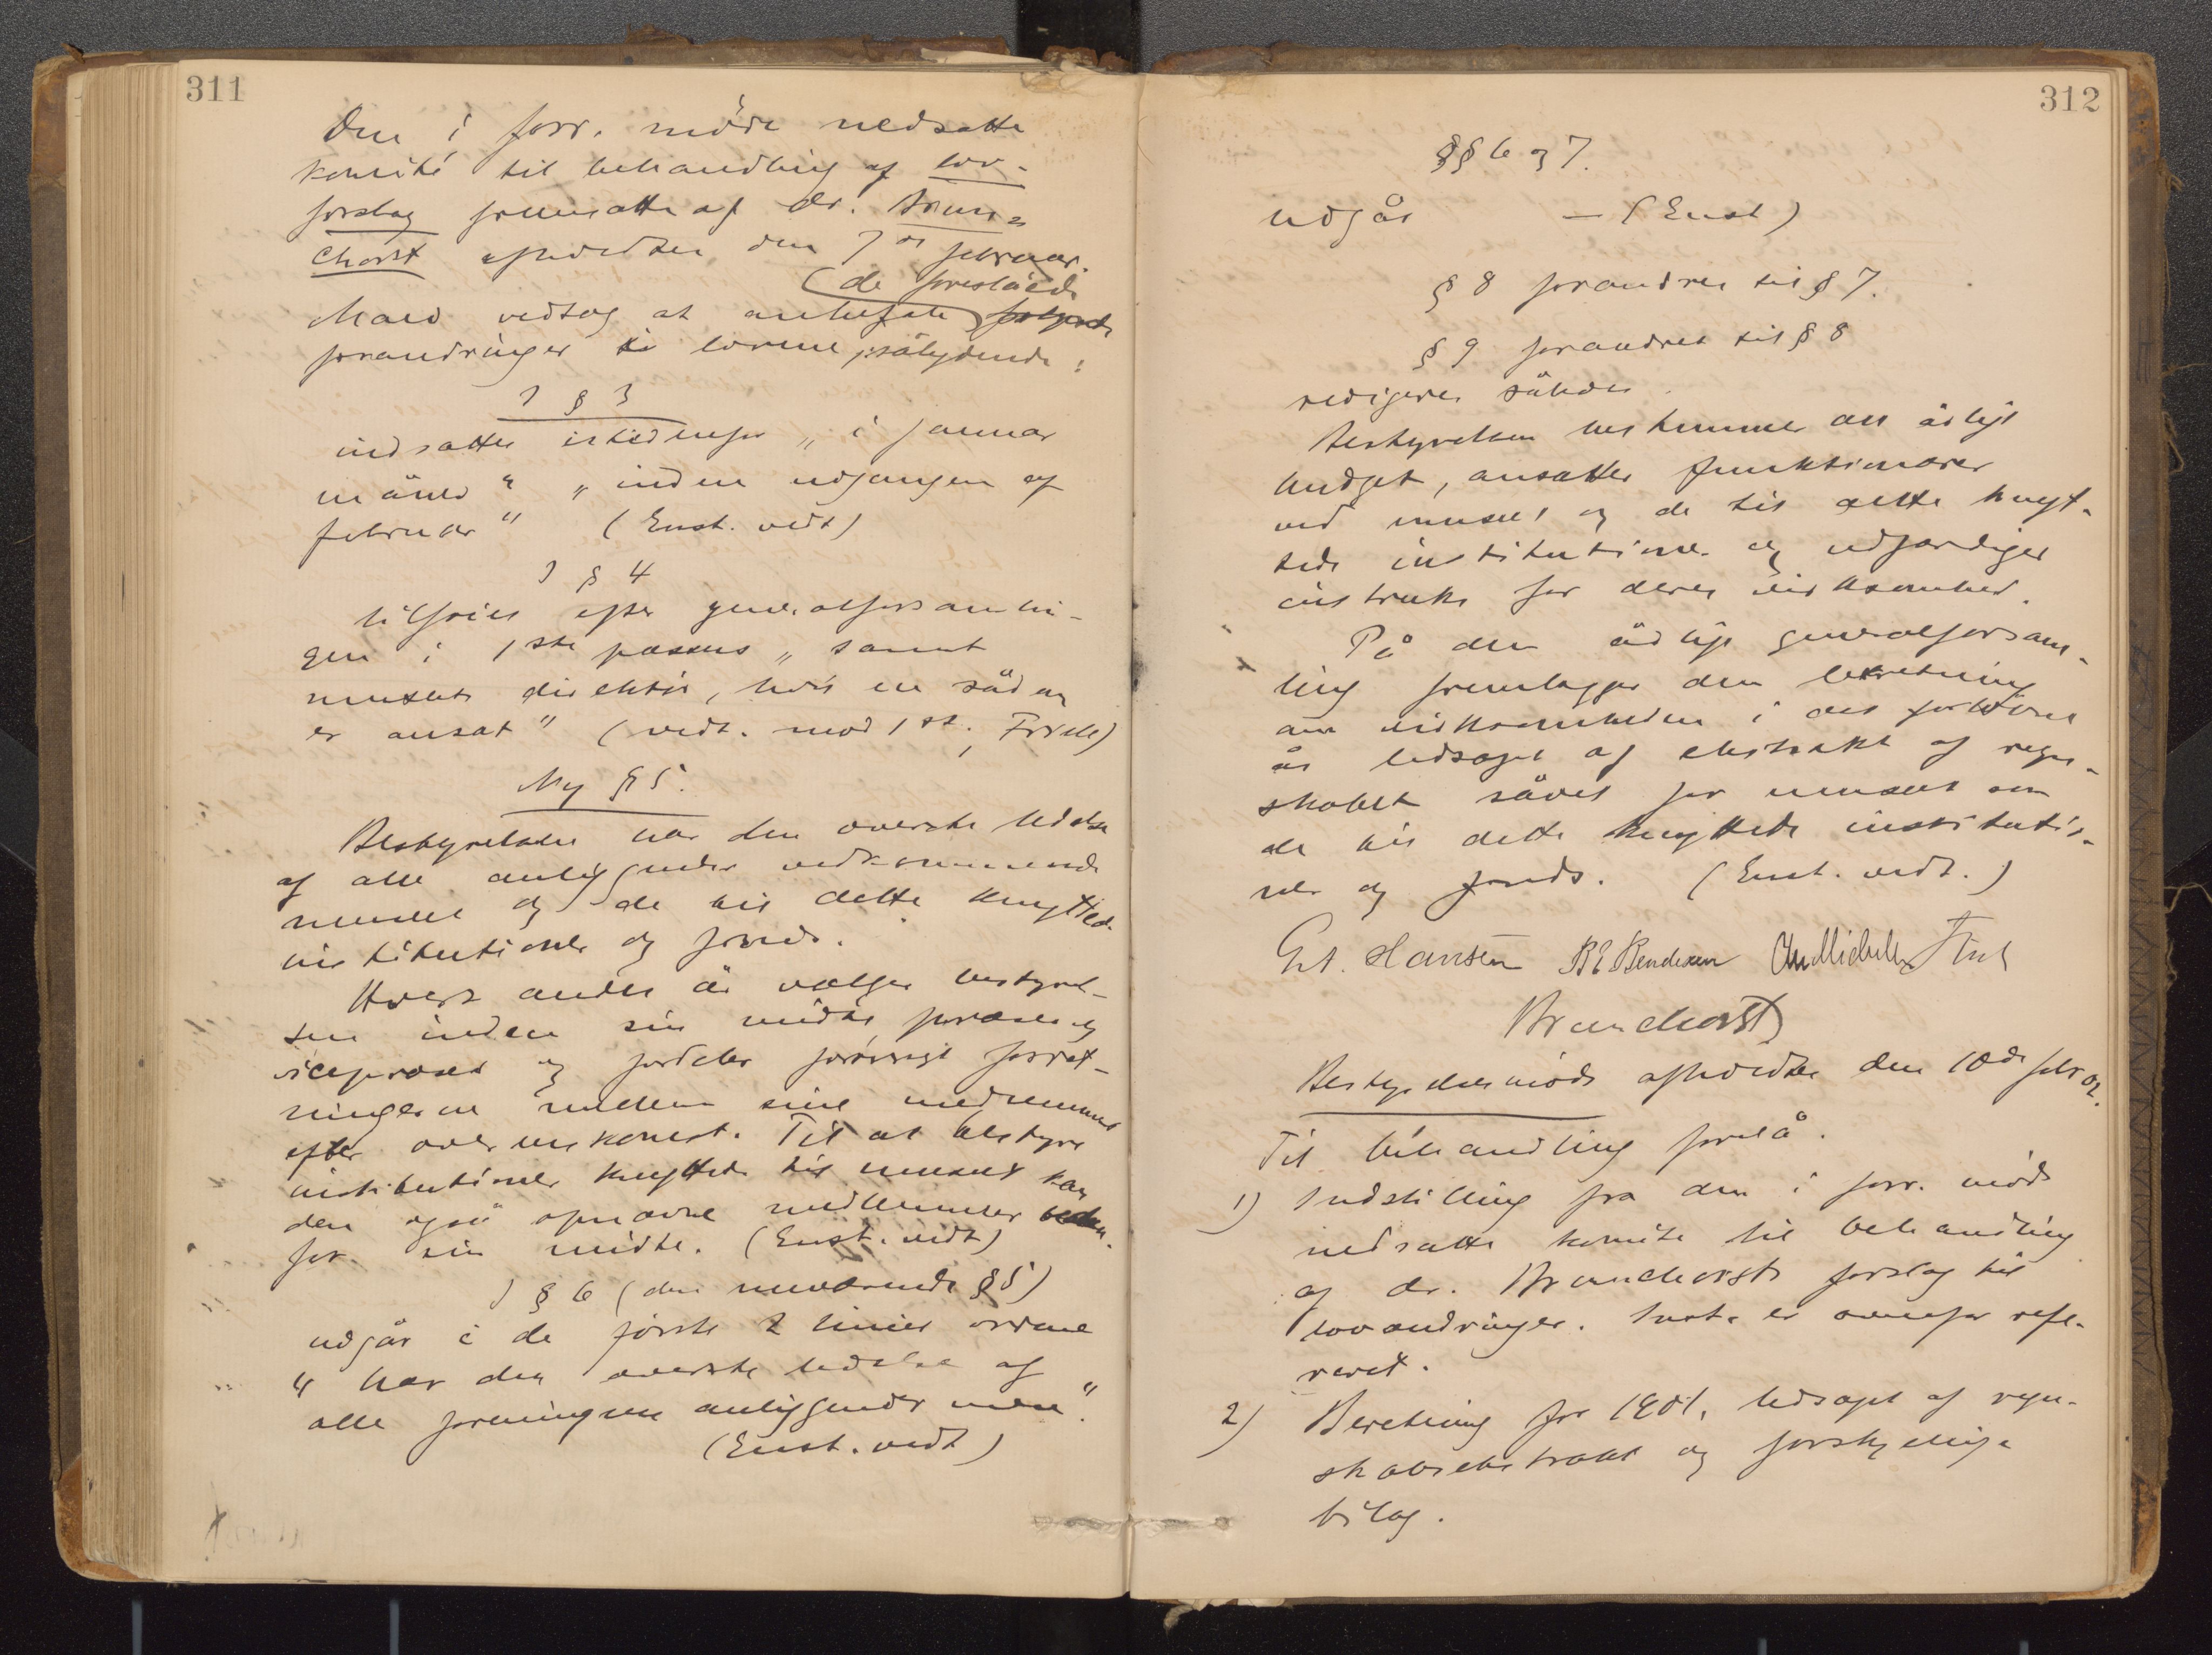 311
Den i forr. möde nedsatte
komité til behandling af lov-
forslag fremsatte af dr. Brun-
chorst afholdtes den 7de februar.
(de foreslåede
Man vedtog at anbefale følgende
forandringer i lovene, sålydende:
I § 3
indsættes istedenfor "i januar
måned" "inden udgangen af
februar" (Enst. vedt)
I § 4
tilföies efter generalforsamlin-
gen i 1ste passus "samt
museets direktör, hvis en sådan
er ansat" (vedt. mod 1 st., Friele)
Ny § 5.
Bestyrelsen har den överste ledelse
af alle anliggender vedkommende
museet og de til dette knyttede
institutioner og fonds.
Hvert andet år vælger bestyrel-
sen inden sin midte præses og
vicepræses og fordeler forövrigt forret-
ningerne mellem sine medlemmer
efter overenskomst. Til at bestyre
institutioner knyttede til museet kan
den også opnævne medlemmer uden-
for sin midte. (Enst. vedt)
I § 6 (den nuværende § 5)
udgår i de förste 2 linier ordene
"har den överste ledelse af
alle foreningens anliggender men".
(Enst. vedt)
312
§§ 6 og 7.
udgår — (Enst)
§ 8 forandres til § 7.
§ 9 forandres til § 8
redigeres således.
Bestyrelsen bestemmer det årlige
budget, ansætter funktionærer
ved museet og de til dette knyt-
tede institutioner og udfærdiger
instruks for deres virksomhed.
På den årlige generalforsam-
ling fremlægger den beretning
om virksomheden i det forlöbne
år ledsaget af ekstrakt af regn-
skabet såvel for museet som
de til dette knyttede institutio-
ner og fonds. (Enst. vedt.)
Gt. Hansen BE Bendixen
Brunchorst
Bestyrelsesmöde afholdtes den 10de febr 02.
Til behandling forelå.
1) Indstilling fra den i forr. möde
nedsatte komite til behandling
af dr. Brunchorsts forslag til
lovandringer. Indst. er ovenfor refe-
reret.
2) Beretning for 1901, ledsaget af regn-
skabsekstrakt og forskjellige
bilag.